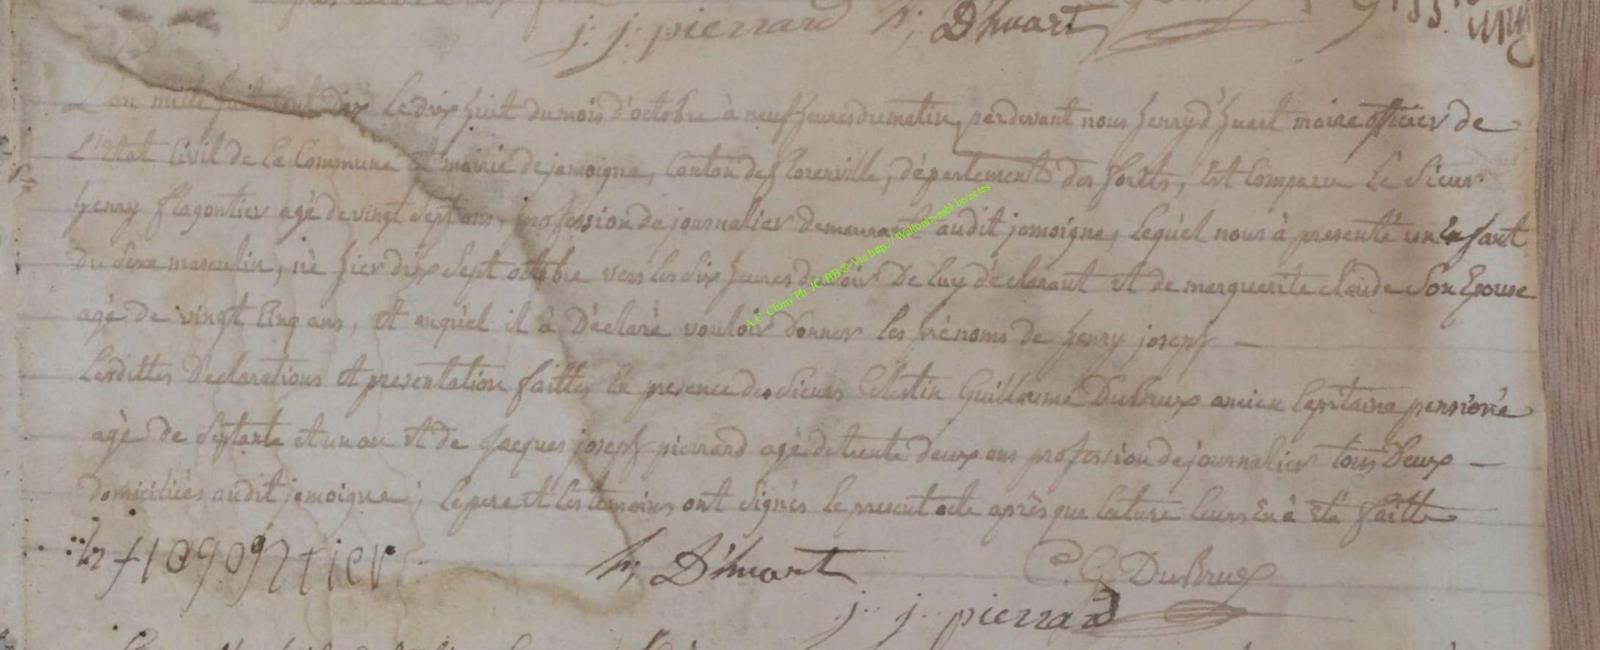 j: j: pierrard h; D'huart
L'an mille huit cent dix le dix huit du mois d'octobre à neuf heures du matin, pardevant nous henry d'huart maire officier de
L'état Civil de la Commune et mairie de jamoigne, Canton de florenville, département des forêts, Est Comparu Le Sieur
henry flagontier agé de vingt sept ans, profession de journalier demeurant audit jamoigne, lequel nous à presenté un Enfant
du Sexe masculin, né hier dix sept octobre vers les six heures du soir De luy déclarant et de marguerite claude Son Epouse
agé de vingt Cinq ans, et auquel il à Déclaré vouloir donner les prénoms de henry joseph —
Lesdittes Déclarations et presentation faittes En presence des Sieurs Célestin Guillaume DuBrux ancien Capitaine pensioné
agé de Septante et un an et de Jacques joseph pierrard agé de trente deux ans profession de journalier tous Deux —
domiciliés audit jamoigne; le pere et les temoins ont Signés le present acte après que lecture leurs En à été faitte
h flagontier h; D'huart C. G DuBrux
j: j. pierrard